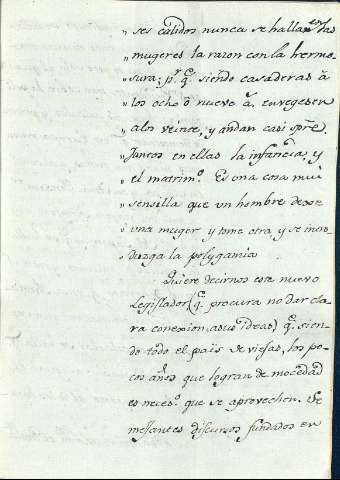 „ ses calidos nunca se hallan en las
„ mugeres la razon con la hermo-
„ sura; p.r q.e siendo casaderas á
„ los ocho ó nueve a. envegesen
„ alos veinte, y andan casi spre.
„ Juntos en ellas la infancia, y
„ el matrim.o Es una cosa mui
„ sensilla que un hombre dexe
„ una muger y tome otra y se intro-
„ duzga la polygamia
Quiere decirnos este nuevo
Legislador (q.e procura no dar cla-
ra conexion asus ideas) q.e sien-
do todo el païs de viejas, los po-
cos años que logran de mocedad
es neces.o que se aprovechen. Se-
mejantes discursos fundados en